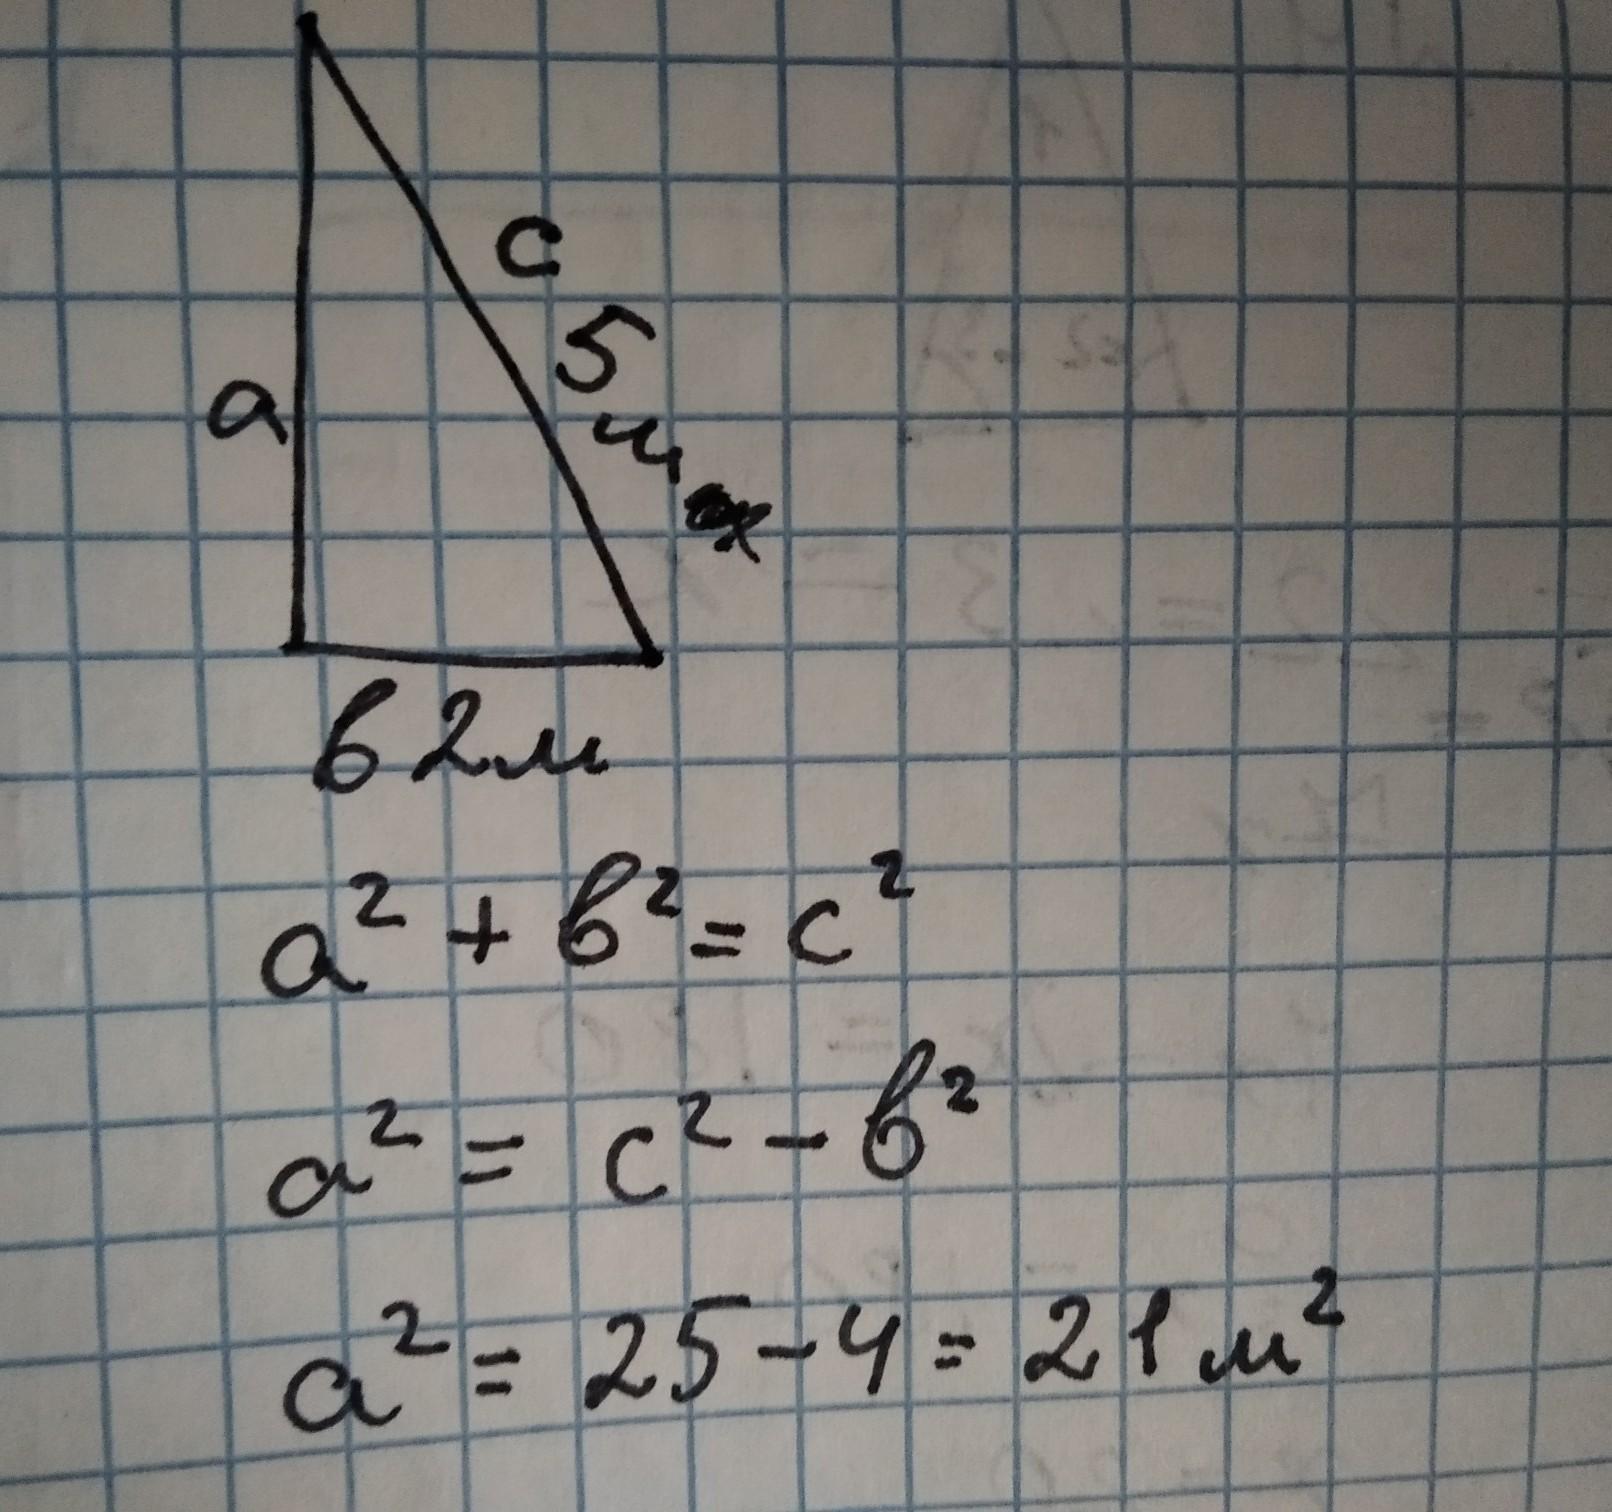 c
5 м
a
в 2м
a² + в² = c²
a² = c² - в²
a² = 25 - 4 = 21 м²